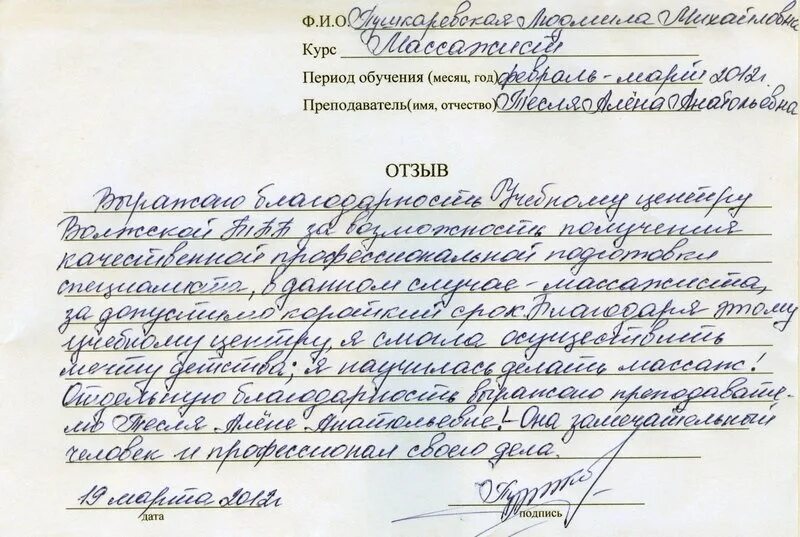 Ф.И.О. Пушкаревская Людмила Михайловна
Курс Массажист
Период обучения (месяц, год) февраль-март 2012г.
Преподаватель(имя, отчество) Тесля Алёна Анатольевна
ОТЗЫВ
Выражаю благодарность Учебному центру
Волжской ТПП за возможность получения
качественной профессиональной подготовки
специалиста, в данном случае - массажиста,
за допустимо короткий срок. Благодаря этому
учебному центру, я смогла осуществить
мечту детства; я научилась делать массаж!
Отдельную благодарность выражаю преподавате-
лю Тесля Алёне Анатольевне! - Она замечательный
человек и профессионал своего дела.
19 марта 2012г
дата
подпись